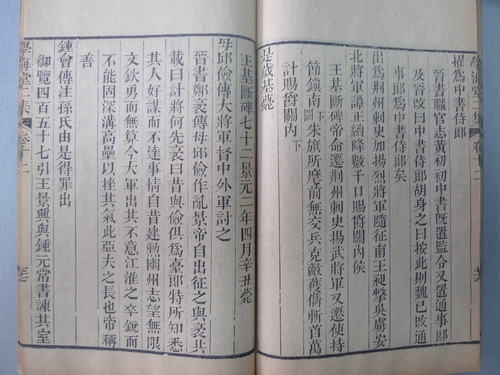 學海堂二集 卷十二
擢為中書侍郎
晉書職官志黃初初中書既置監令又置通事郎
及晉改曰中書侍郎胡身之曰按此則魏已改通
事郎為中書侍郎矣
出為荊州刺史加揚烈將軍隨征南王昶擊吳虜安
北將軍譚正納降數千口賜爵關內侯
王基斷碑帝命遷荊州刺史揚武將軍又遷使持
節鎮南下闕朱旗所麾前無交兵克敵獲儁斬首萬
計賜爵關內下
是歲基薨
王基斷碑七十二景元二年四月辛丑薨
毋邱儉傳大將軍督中外軍討之
晉書鄭袤傳毋邱儉作亂景帝自出征之與袤共
載曰計將何先袤曰昔與儉俱為臺郎特所知悉
其人好謀而不達事情自昔建勳幽州志望無限
文欽勇而無算今大軍出其不意江淮之卒銳而
不能固深溝高壘以挫其氣此亞夫之長也帝稱
善
鍾會傳注孫氏由是得罪出
御覽四百五十七引王景興與鍾元常書諫其室
學海堂二集 卷十二